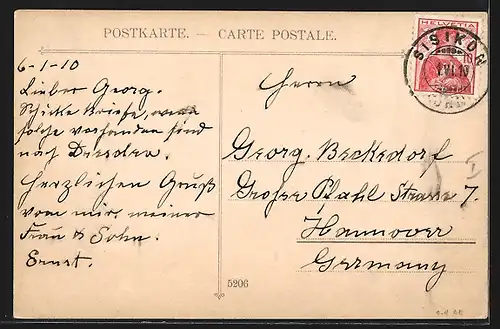 POSTKARTE. – CARTE POSTALE.
HELVETIA
10
SISIKON
1.VI.10
6-1-10
Lieber Georg.
Schicke Briefe, wenn
solche vorhanden sind
nach Dresden.
Herzlichen Gruß
von mir, meiner
Frau & Sohn.
Ernst.
Herrn
Georg. Beckedorf
Grosse Pfahl Strasse 7.
Hannover
Germany
5206